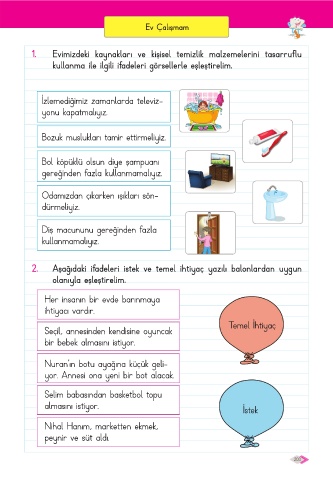 Ev Çalışmam
1. Evimizdeki kaynakları ve kişisel temizlik malzemelerini tasarruflu
kullanma ile ilgili ifadeleri görsellerle eşleştirelim.
İzlemediğimiz zamanlarda televiz-
yonu kapatmalıyız.
Bozuk muslukları tamir ettirmeliyiz.
Bol köpüklü olsun diye şampuanı
gereğinden fazla kullanmamalıyız.
Odamızdan çıkarken ışıkları sön-
dürmeliyiz.
Diş macununu gereğinden fazla
kullanmamalıyız.
2. Aşağıdaki ifadeleri istek ve temel ihtiyaç yazılı balonlardan uygun
olanıyla eşleştirelim.
Her insanın bir evde barınmaya
ihtiyacı vardır.
Seçil, annesinden kendisine oyuncak
bir bebek almasını istiyor.
Nuran'ın botu ayağına küçük geli-
yor. Annesi ona yeni bir bot alacak.
Selim babasından basketbol topu
almasını istiyor.
Nihal Hanım, marketten ekmek,
peynir ve süt aldı.
Temel İhtiyaç
İstek